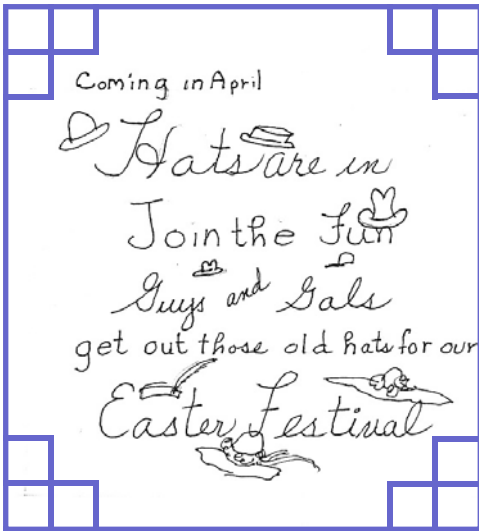 Coming in April
Hats are in
Join the Fun
Guys and Gals
get out those old hats for our
Easter Festival